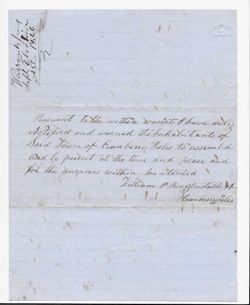 Warrant for
Sept Election
1866
Pursuant to the within warrant I have duly
notified and warned the Inhabitants of
Said Town of Cranberry Isles to assemble
and be present at the time and place and
for the purposes within mentioned
William P Constable of
Cranberry Isles